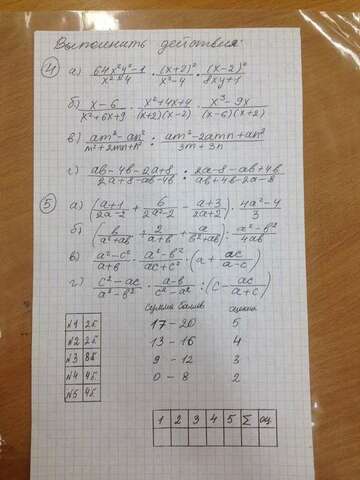 Выполнить действия:
④ а) (64x²y²-1)/(x²-4) · (x+2)²/(x²-4) · (x-2)²/(8xy+1)
б) (x-6)/(x²+6x+9) · (x²+4x+4)/((x+2)(x-2)) · (x³-9x)/((x-6)(x+2))
в) (am²-an²)/(m²+2mn+n²) : (am²-2amn+an²)/(3m+3n)
г) (ab-4b-2a+8)/(2a+8-ab-4b) : (2a-8-ab+4b)/(ab+4b-2a-8)
⑤ а) ((a+1)/(2a-2) + 6/(2a²-2) - (a+3)/(2a+2)) · (4a²-4)/3
б) (b/(a²+ab) + 2/(a+b) + a/(b²+ab)) : (a²-b²)/(4ab)
в) (a²-c²)/(a+b) · (a²-b²)/(ac+c²) · (a + ac/(a-c))
г) (c²-ac)/(a²-b²) · (a-b)/(c²-a²) : (c - ac/(a+c))
сумма баллов оценка
N1 2б 17-20 5
N2 2б 13-16 4
N3 8б 9-12 3
N4 4б 0-8 2
N5 4б
1 2 3 4 5 Σ оц